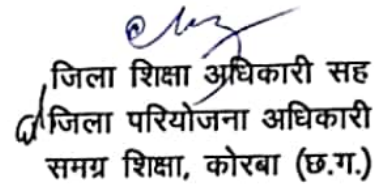 जिला शिक्षा अधिकारी सह
जिला परियोजना अधिकारी
समग्र शिक्षा, कोरबा (छ.ग.)